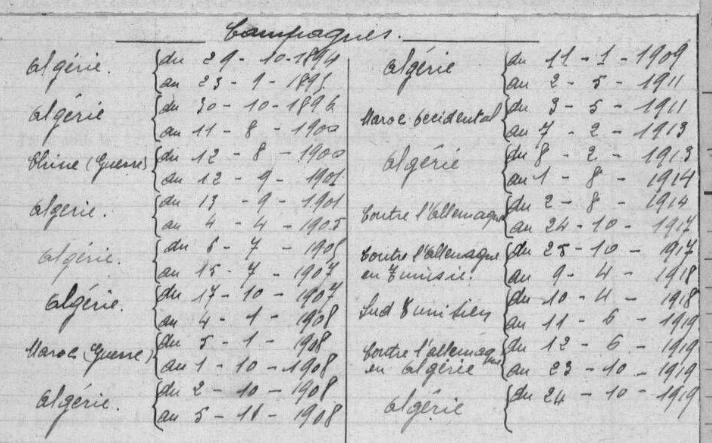 Campagnes.
Algérie. du 29 - 10 - 1894
au 23 - 9 - 1895
Algérie du 30 - 10 - 1896
au 11 - 8 - 1900
Chine (Guerre) du 12 - 8 - 1900
au 12 - 9 - 1901
Algérie. du 13 - 9 - 1901
au 4 - 4 - 1905
Algérie. du 6 - 7 - 1905
au 15 - 7 - 1907
Algérie. du 17 - 10 - 1907
au 4 - 1 - 1908
Maroc (Guerre) du 5 - 1 - 1908
au 1 - 10 - 1908
Algérie. du 2 - 10 - 1908
au 5 - 11 - 1908
Algérie du 11 - 1 - 1909
au 2 - 5 - 1911
Maroc Occidental du 3 - 5 - 1911
au 7 - 2 - 1913
Algérie du 8 - 2 - 1913
au 1 - 8 - 1914
Contre l'Allemagne du 2 - 8 - 1914
au 24 - 10 - 1917
Contre l'Allemagne du 25 - 10 - 1917
en Tunisie. au 9 - 4 - 1918
Sud Tunisien du 10 - 4 - 1918
au 11 - 6 - 1919
Contre l'Allemagne du 12 - 6 - 1919
en Algérie au 23 - 10 - 1919
Algérie du 24 - 10 - 1919